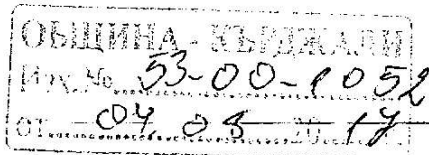 ОБЩИНА - КЪРДЖАЛИ
Изх. № 53-00-1052
от 04.08.2017